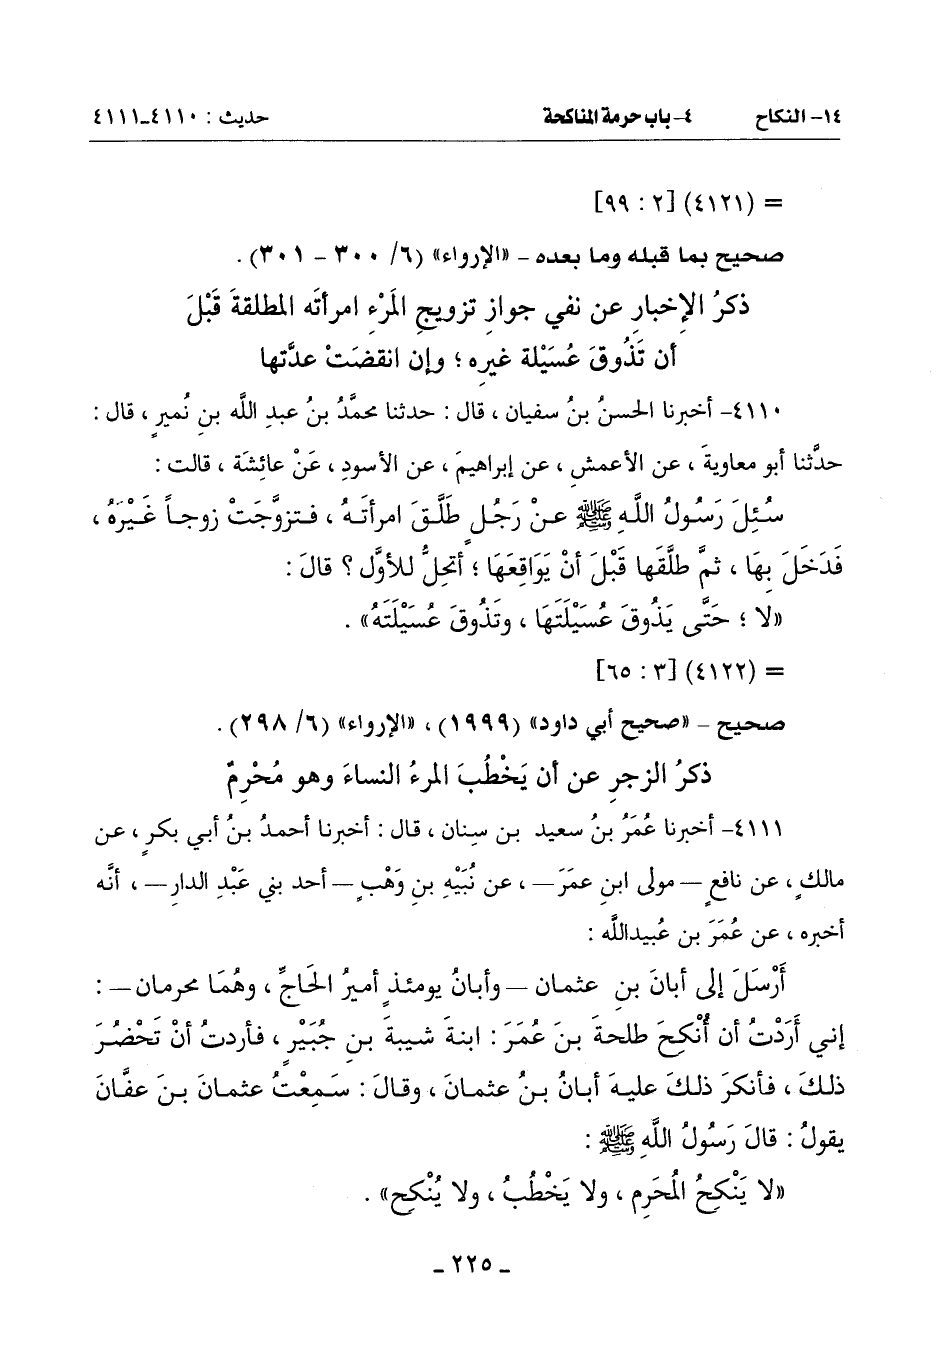 ١٤- النكاح ٤- باب حرمة المناكحة حديث : ٤١١٠-٤١١١
= (٤١٢١) [٢ : ٩٩]
صحيح بما قبله وما بعده - «الإرواء» (٦/ ٣٠٠ - ٣٠١) .
ذكرُ الإخبارِ عن نفي جوازِ تزويجِ المَرْءِ امرأتَه المطلقةَ قَبْلَ
أن تَذُوقَ عُسَيْلة غيرِه ؛ وإن انقضَتْ عدَّتها
٤١١٠- أخبرنا الحسنُ بنُ سفيان ، قال : حدثنا محمَّدُ بنُ عبدِ اللَّه بنِ نُميرٍ ، قال :
حدَّثنا أبو معاويةَ ، عن الأعمشِ ، عن إبراهيمَ ، عن الأسودِ ، عَنْ عائِشَة ، قالت :
سُئِلَ رَسُولُ اللَّهِ ﷺ عنْ رَجُلٍ طَلَّقَ امرأتَهُ ، فتزوَّجَتْ زوجاً غَيْرَهُ ،
فَدَخَلَ بِهَا ، ثمَّ طلَّقَها قَبْلَ أنْ يَوَاقِعَهَا ؛ أتحِلُّ للأوَّلِ ؟ قالَ :
«لا ؛ حَتَّى يَذُوقَ عُسَيْلَتَهَا ، وتَذُوقَ عُسَيْلَتَهُ» .
= (٤١٢٢) [٣ : ٦٥]
صحيح - «صحيح أبي داود» (١٩٩٩) ، «الإرواء» (٦/ ٢٩٨) .
ذكرُ الزجرِ عن أن يَخْطُبَ المرءُ النساءَ وهو مُحْرِمٌ
٤١١١- أخبرنا عُمَرُ بنُ سعيد بن سِنان ، قال : أخبرنا أحمدُ بنُ أبي بكرٍ ، عن
مالكٍ ، عن نافعٍ — مولى ابنِ عمَرَ — ، عن نُبَيْهِ بنِ وَهْبٍ — أحد بني عَبْدِ الدارِ — ، أنَّه
أخبره ، عن عُمَرَ بن عُبيداللَّه :
أَرْسَلَ إلى أبانَ بنِ عثمان — وأبانُ يومئذٍ أميرُ الحَاجِّ ، وهُمَا محرمان — :
إني أَرَدْتُ أن أُنْكِحَ طلحةَ بنَ عُمَرَ : ابنةَ شيبةَ بنِ جُبَيْرٍ ، فأردتُ أنْ تَحْضُرَ
ذلكَ ، فأنكرَ ذلكَ عليهَ أبانُ بنُ عثمانَ ، وقالَ : سَمِعْتُ عثمانَ بنَ عفَّانَ
يقولُ : قالَ رَسُولُ اللَّهِ ﷺ :
«لا يَنْكِحُ المُحَرِم ، ولا يَخْطُبُ ، ولا يُنْكِح» .
- ٢٢٥ -